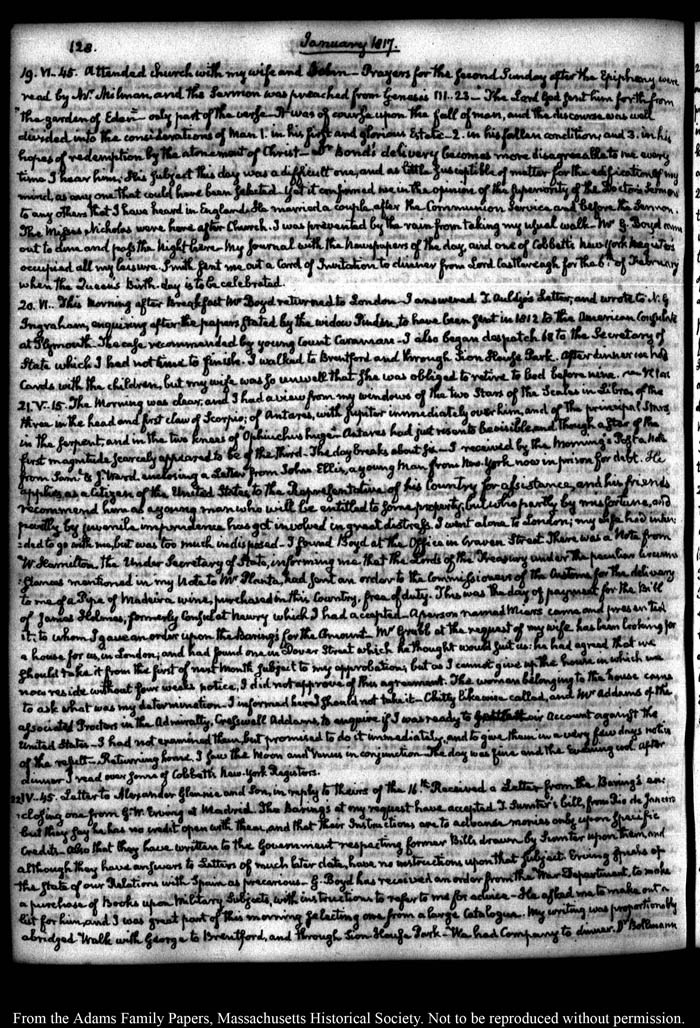 128. January 1817.
19. VI-45. Attended Church with my wife and John - Prayers for the second Sunday after the Epiphany were
read by Mr. Milman, and the Sermon was preached from Genesis III. 23 - The Lord God sent him forth from
the garden of Eden - only part of the verse - It was of course upon the fall of man, and the discourse was well
divided into the considerations of Man 1. in his first and glorious Estate - 2. in his fallen condition; and 3. in his
hopes of redemption by the atonement of Christ - Bond's delivery becomes more disagreeable to me every
time I hear him; His subject this day was a difficult one, and as little susceptible of matter for the edification of my
mind, as any one that could have been selected - Yet it confirmed me in the opinion of the superiority of the Doctor's Sermons
to any others that I have heard in England. He married a couple after the Communion Service and before the Sermon.
The Misses Nicholas were here after Church. I was prevented by the rain from taking my usual walk - Mr. G. Boyd came
out to dine and pass the Night here - My Journal with the Newspapers of the day, and one of Cobbett's New-York Registers
occupied all my leisure. Smith sent me out a Card of Invitation to dinner from Lord Castlereagh for the 6th of February
when the Queen's birth-day is to be celebrated.
20. VI. This Morning after Breakfast Mr Boyd returned to London - I answered T. Auldjo's Letter, and wrote to N. G
Ingraham, enquiring after the papers stated by the widow to have been sent in 1812 to the American Consulate
at Plymouth. The case recommended by young Count - I also began despatch 68 to the Secretary of
State which I had not time to finish. I walked to Brentford and through Sion House Park. After dinner we had
Cards with the children, but my wife was so unwell that she was obliged to retire to bed before nine.
21. V-15. The Morning was clear, and I had a view from my windows of the two Stars of the Scales in Libra, of the
three in the head and first claw of Scorpio; of Antares, with Jupiter immediately over him, and of the principal Stars
in the Serpent; and in the two knees of Ophiuchus huge - Antares had just risen to be visible, and though a Star of the
first magnitude scarcely appeared to be of the third. The day breaks about six - I received by the Morning's Post a Note
from Saml. & J. Ward, enclosing a Letter from John Ellis, a young Man from New-York now in prison for debt. He
applies, as a Citizen of the United States, to the Representative of his Country for assistance, and his friends
recommend him as a young man who will be entitled to some property; but who partly by misfortune, and
partly by juvenile imprudence has got involved in great distress. I went alone to London; my wife had inten-
ded to go with me, but was too much indisposed - I found Boyd at the Office in Craven Street. There was a Note from
W. Hamilton, the Under Secretary of State, informing me that the Lords of the Treasury under the peculiar circum-
stances mentioned in my Note to Mr Planta, had sent an order to the Commissioners of the Customs for the delivery
to me of a Pipe of Madeira wine, purchased in this Country, free of duty. This was the day of payment for the Bill
of James Holmes, formerly Consul at Newry which I had accepted - A person named Mears came and presented
it; to whom I gave an order upon the Barings for the Amount - Mr Grubb at the request of my wife has been looking for
a house for us in London; and had found one in Dover Street which he thought would suit us: he had agreed that we
should take it from the first of next Month subject to my approbation; but as I cannot give up the house in which we
now reside without four weeks notice, I did not approve of this agreement. The woman belonging to the house came
to ask what was my determination - I informed her I should not take it - Chitty likewise called, and Mr Addams of the
associated Proctors in the Admiralty, Cresswell Addams, to enquire if I was ready to settle their Account against the
United States - I had not examined them but promised to do it immediately, and to give them in a very few days notice
of the result - Returning home, I saw the Moon and Venus in conjunction - The day was fine and the Evening cool. After
dinner I read over some of Cobbett's New-York Registers.
22. IV-45. Letter to Alexander Glennie and Son, in reply to theirs of the 16th. Received a Letter from the Baring's en-
closing one from G. W. Erving at Madrid. The Barings at my request have accepted T. Sumter's bill, from Rio de Janeiro
but they say he has no credit open with them, and that their Instructions are to advance monies only upon specific
Credits - Also that they have written to the Government respecting former Bills drawn by Sumter upon them, and
although they have answers to Letters of much later date, have no instructions upon that subject. Erving speaks of
the State of our Relations with Spain as precarious - G. Boyd has received an order from the War Department, to make
a purchase of Books upon Military Subjects, with instructions to refer to me for advice - He asked me to make out a
list for him, and I was great part of this morning selecting one from a large Catalogue. My writing was proportionably
abridged. Walk with George to Brentford, and through Sion House Park - We had Company to dinner. Dr Bollmann
From the Adams Family Papers, Massachusetts Historical Society. Not to be reproduced without permission.